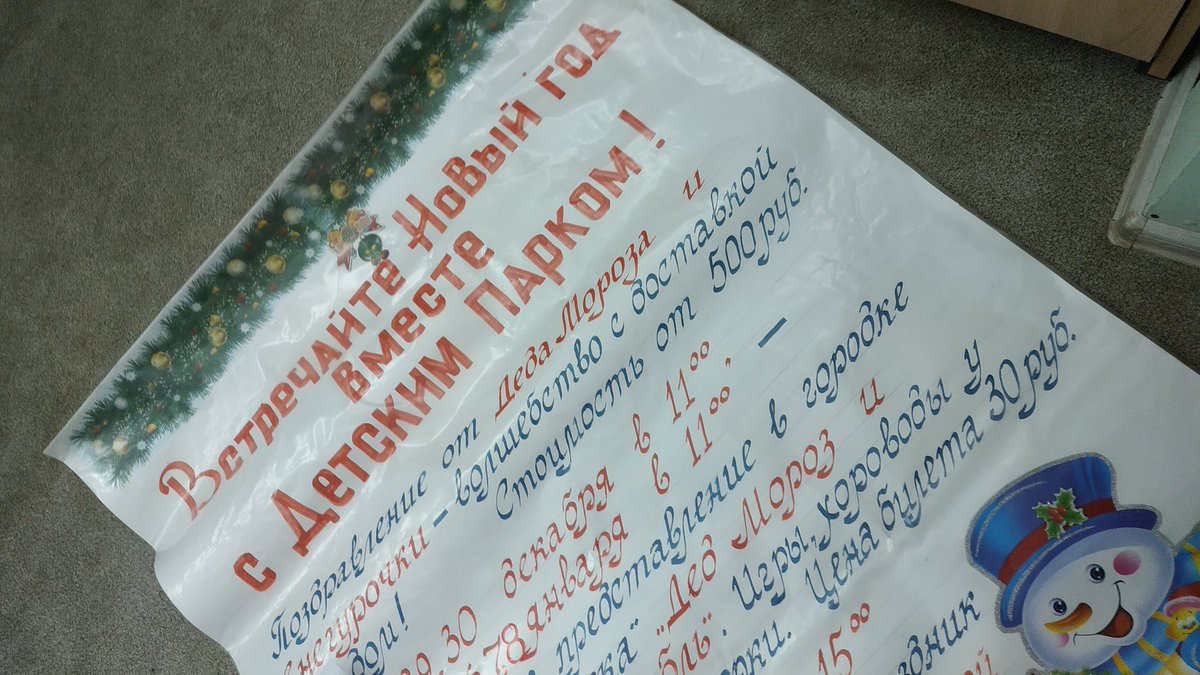 Встречайте Новый год
вместе
с Детским Парком!
Поздравление от Деда Мороза и
негурочки - волшебство с доставкой
дом! Стоимость от 500 руб.
30 декабря в 11⁰⁰
78 января в 11⁰⁰, -
представление в городке
"Дед Мороз и
бль". Игры, хороводы у
рки. Цена билета 30 руб.
15⁰⁰
здник
ой